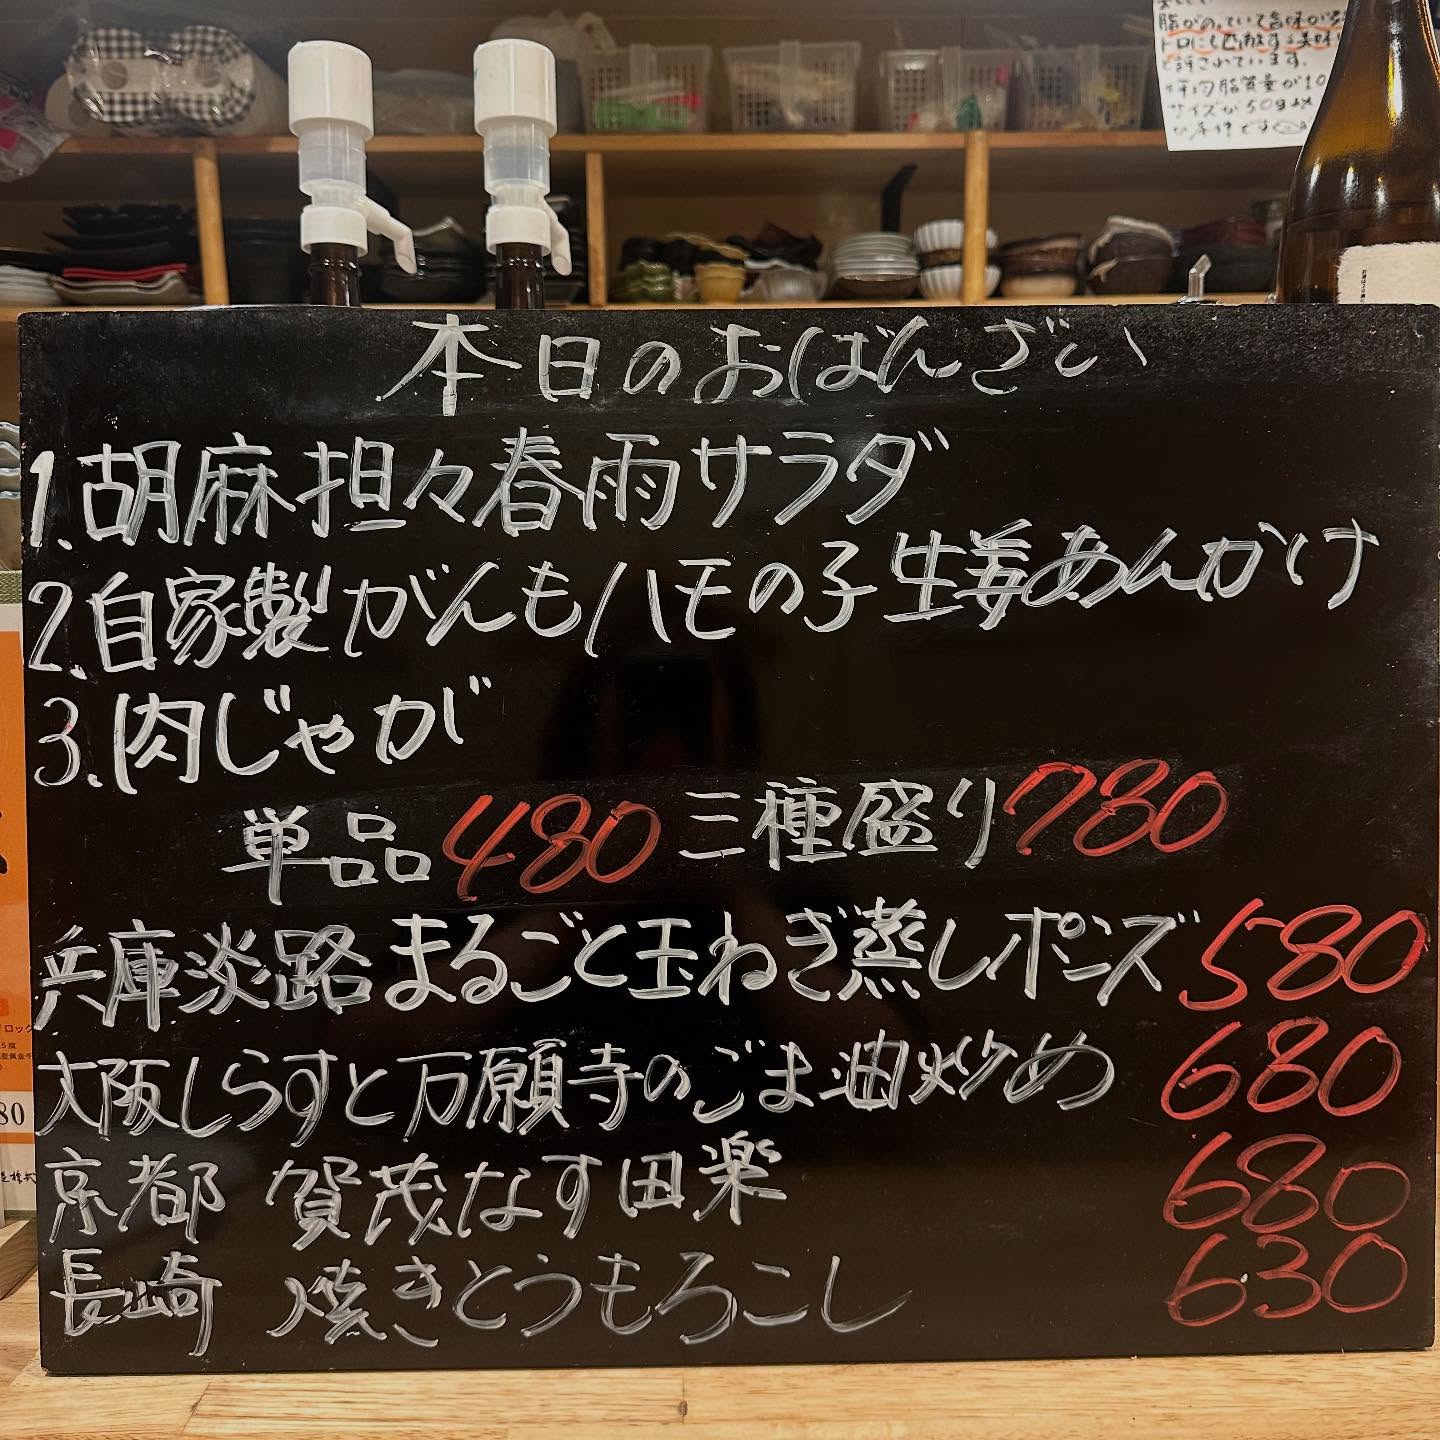 脂がのっていて旨味が
トロにも匹敵する美味
と評されています。
平均脂質量が10
サイズが50g以
本日のおばんざい
1.胡麻担々春雨サラダ
2.自家製がんも ハモの子生姜あんかけ
3.肉じゃが
単品480 三種盛り780
兵庫淡路まるごと玉ねぎ蒸しポンズ 580
大阪しらすと万願寺のごま油炒め 680
京都 賀茂なす田楽 680
長崎 焼きとうもろこし 630